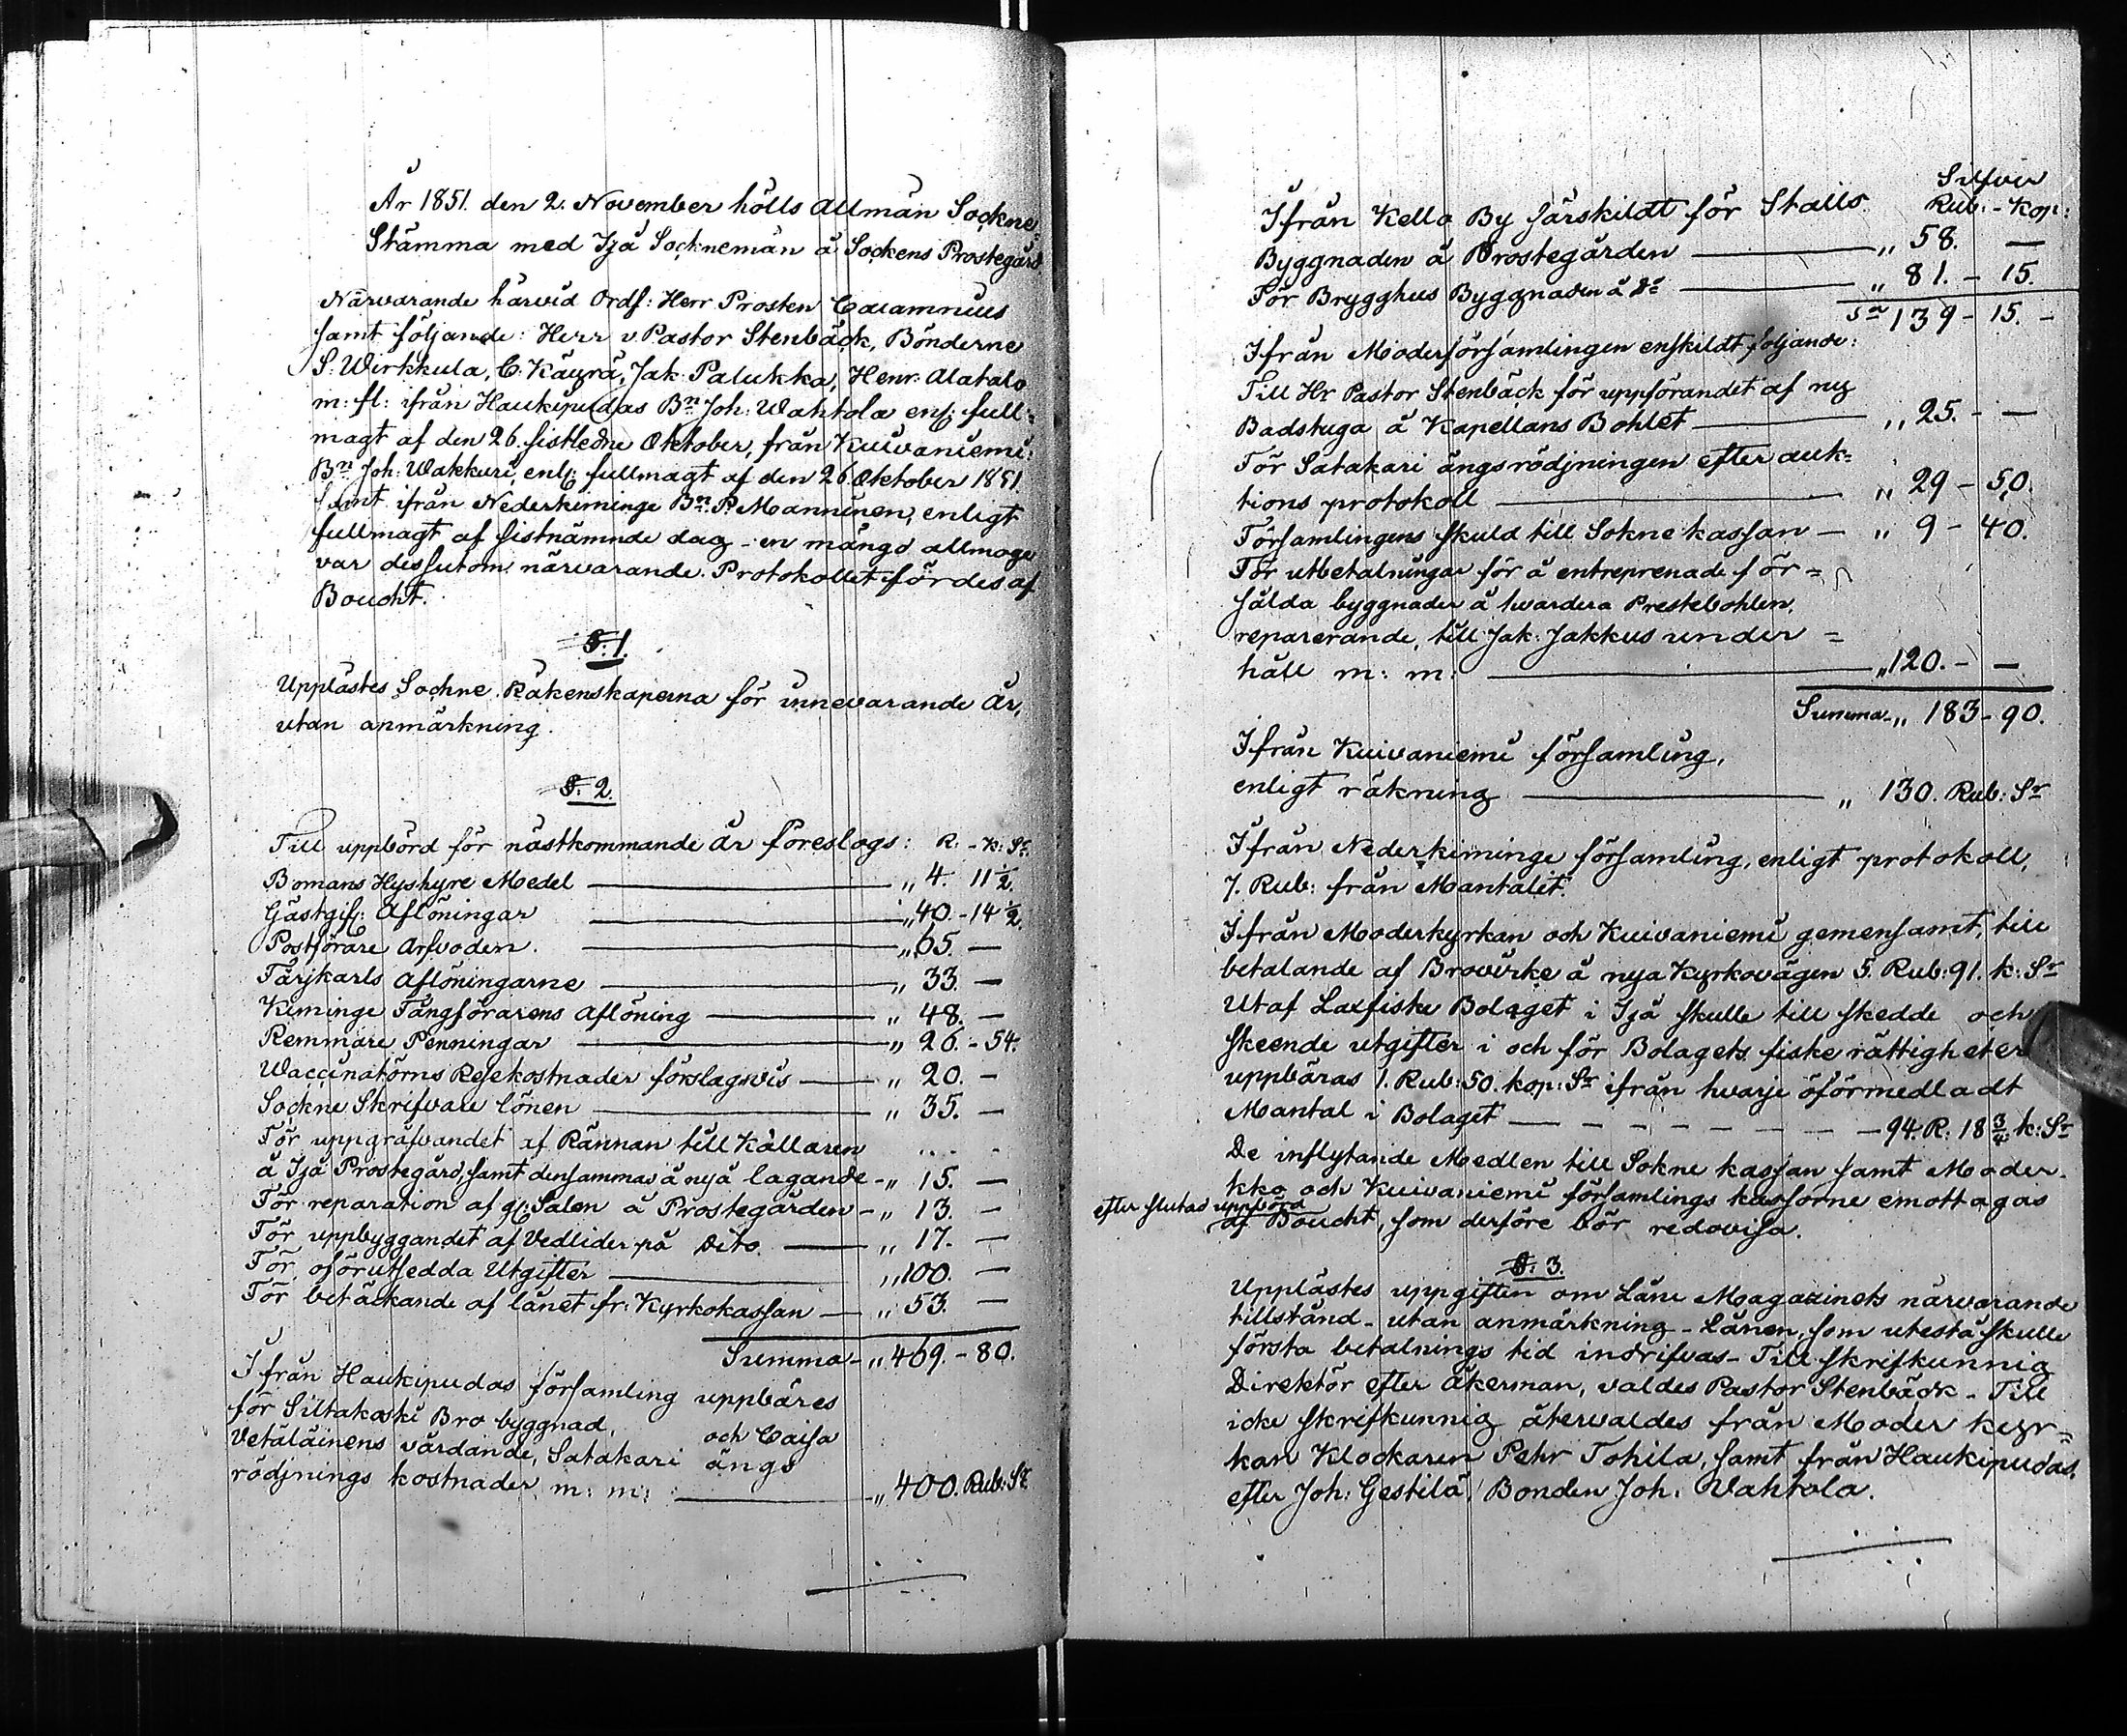 År 1851. den 2. November hölls Allmän Sockne-
Stämma med Ijå Socknemän å Sockens Prostegård.
Närvarande härvid Ordf: Herr Prosten Calamnius
samt följande: Herr v. Pastor Stenbäck, Bönderne
S. Wirkkula, C. Käyrä, Jak: Palukka, Henr: Alatalo
m: fl: ifrån Haukipudas Bn Joh: Wahtola enl: full-
magt af den 26. sistledne Oktober, från Kuivaniemi:
Bn Joh: Wakkuri, enl: fullmagt af den 26. Oktober 1851.
samt ifrån Nederkiminge Bn P. Manninen, enligt
fullmagt af sistnämnde dag - en mängd allmoge
var dessutom närvarande. Protokollet fördes af
Boucht.
§. 1.
Upplästes Sockne Räkenskaperna för innevarande År,
utan anmärkning.
§. 2.
Till uppbörd för nästkommande År föreslogs: R: - K: Sr.
Bomans Hyshyre Medel — „ 4. 11 1/2.
Gästgif: Aflöningar — „ 40. - 14 1/2.
Postförare Arfvoden. — „ 65. —
Färjkarls Aflöningarne — „ 33. —
Kiminge Fångförarens Aflöning — „ 48. —
Remmare Penningar — „ 26. - 54.
Waccinatörns Resekostnader förslagsvis — „ 20. —
Sockne Skrifvare lönen — „ 35. —
För uppgräfvandet af Rännan till Källaren
å Ijå Prostegård, samt densammas å nyå lagande - „ 15. —
För reparation af gl: Salen å Prostegården - „ 13. —
För uppbyggandet af Vedlider på Dito. — „ 17. —
För oförutsedda Utgifter — „ 100. —
För betäckande af lånet fr: Kyrkokassan — „ 53. —
Summa - „ 469. - 80.
Ifrån Haukipudas församling uppbäres
för Siltakoski Bro byggnad, och Caisa
Vetäläinens vårdande, Satakari ängs
rödjnings kostnader m: m: — „ 400. Rub: Sr
Silfver
Ifrån Kello By särskildt för Stalls Rub: - Kop:
Byggnaden å Prostegården — „ 58. —
För Brygghus Byggnaden å Do — „ 81. - 15.
Sa 139 - 15. -
Ifrån Moderförsamlingen enskildt följande:
Till Hr Pastor Stenbäck för uppförandet af ny
Badstuga å Kapellans Bohlet — „ 25. - —
För Satakari ängsrödjningen efter auk-
tions protokoll — „ 29 - 50.
Församlingens skuld till Sokne kassan — „ 9 - 40.
För utbetalningar för å entreprenade för-
sålda byggnader å hvardera Prestebohlen,
reparerande, till Jak: Jakkus under-
håll m: m: — „ 120. - —
Summa - „ 183 - 90.
Ifrån Kuivaniemi församling,
enligt räkning — „ 130. Rub: Sr
Ifrån Nederkiminge församling, enligt protokoll,
7. Rub: från Mantalet.
Ifrån Moderkyrkan och Kuivaniemi gemensamt, till
betalande af Brovirke å nya Kyrkovägen 5. Rub: 91. k: Sr
Utaf Laxfiske Bolaget i Ijå skulle till skedde och
skeende utgifter i och för Bolagets fiske rättigheter
uppbäras 1. Rub: 50. kop: Sr ifrån hvarje oförmedladt
Mantal i Bolaget — — — — — — — 94. R: 18 3/4 k: Sr
De inflytande Medlen till Sokne kassan samt Moder-
kko och Kuivaniemi församlings kassorne emottagas
efter slutad uppbörd
af Boucht, som derföre bör redovisa.
§. 3.
Upplästes uppgiften om Låne Magazinets närvarande
tillstånd - utan anmärkning - Lånen, som utestå skulle
första betalnings tid indrifvas - Till skrifkunnig
Direktör efter Åkerman, valdes Pastor Stenbäck - Till
icke skrifkunnig återvaldes från Moder kyr-
kan Klockaren Pehr Tohila, samt från Haukipudas,
efter Joh: Gestilä, Bonden Joh: Wahtola.